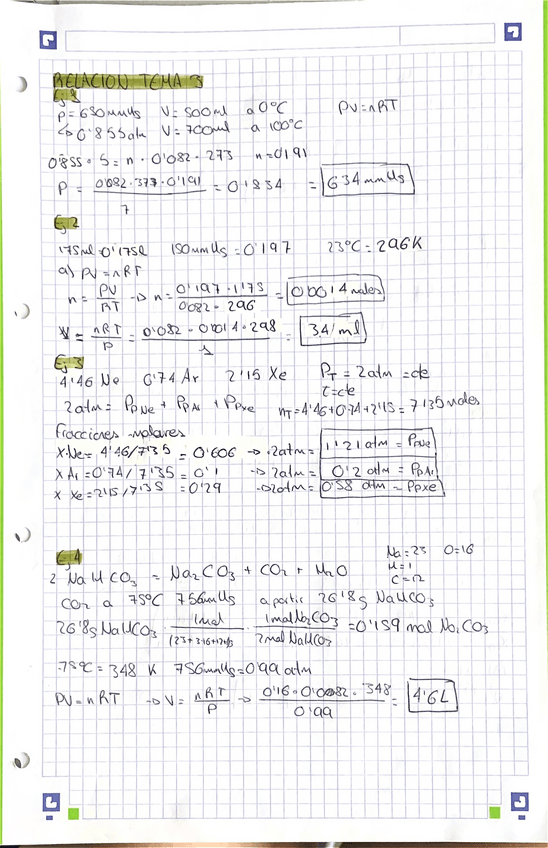 RELACION TEMA 3
Ej 1
P = 650mmHg V = 500ml a 0°C PV = nRT
↳ 0'855atm V = 700ml a 100°C
0'855 · 5 = n · 0'082 · 273 n = 0'191
P = 0'082 · 373 · 0'191 / 7 = 0'834 = 634 mmHg
Ej 2
175ml = 0'175l 150mmHg = 0'197 23°C = 296K
a) PV = nRT
n = PV / RT → n = 0'197 · 1'75 / 0'082 · 296 = 0'0014 moles
V = nRT / P = 0'082 · 0'0014 · 298 / 1 = 34'1 ml
Ej 3
4'46 Ne 0'74 Ar 2'15 Xe PT = 2atm = cte
t = cte
2atm = PpNe + PpAr + PpXe nT = 4'46 + 0'74 + 2'15 = 7'35 moles
Fracciones molares
X Ne = 4'46/7'35 = 0'606 → · 2atm = 1'21 atm = PpNe
X Ar = 0'74/7'35 = 0'1 → 2atm = 0'2 atm = PpAr
X Xe = 2'15/7'35 = 0'29 → 2atm = 0'58 atm = PpXe
Ej 4
Na = 23 O = 16
H = 1
C = 12
2 NaHCO3 = Na2CO3 + CO2 + H2O
CO2 a 75°C 756mmHg a partir 26'8g NaHCO3
26'8g NaHCO3 · 1mol / (23+3·16+12+1) · 1mol Na2CO3 / 2mol NaHCO3 = 0'159 mol Na2CO3
75°C = 348 K 756mmHg = 0'99 atm
PV = nRT → V = nRT / P → 0'16 · 0'082 · 348 / 0'99 = 4'6L